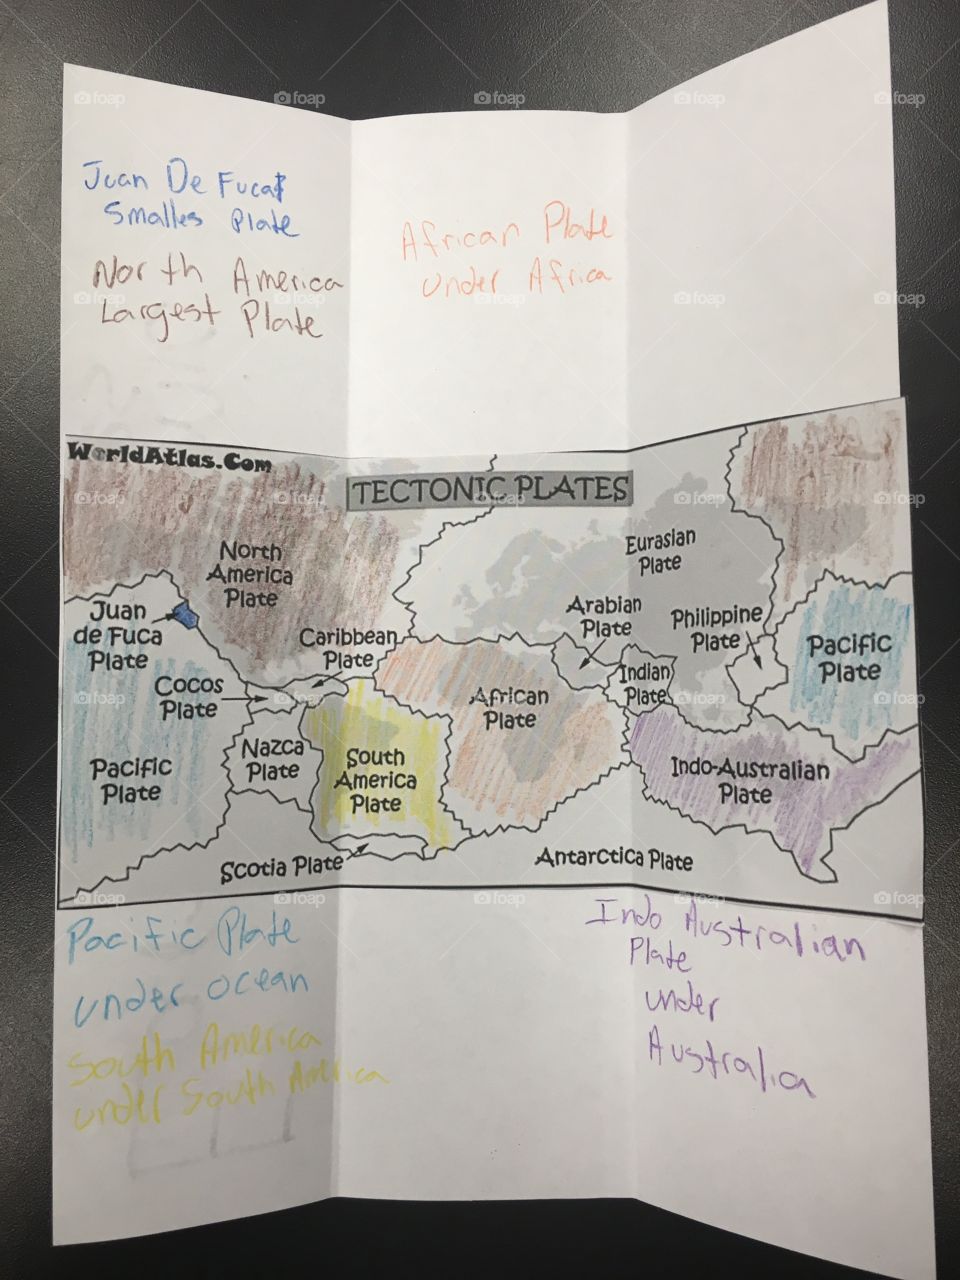 Juan De Fuca
Smalles Plate
North America
Largest Plate
African Plate
under Africa
WorldAtlas.Com
TECTONIC PLATES
North
America
Plate
Eurasian
Plate
Juan
de Fuca
Plate
Caribbean
Plate
Arabian
Plate
Philippine
Plate
Pacific
Plate
Cocos
Plate
African
Plate
Indian
Plate
Pacific
Plate
Nazca
Plate
South
America
Plate
Indo-Australian
Plate
Scotia Plate
Antarctica Plate
Pacific Plate
under ocean
South America
under South America
Indo Australian
Plate
under
Australia
foap